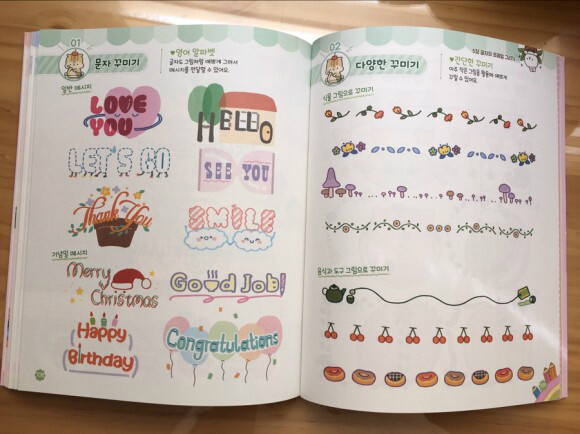 01
문자 꾸미기
♥영어 알파벳
글자도 그림처럼 예쁘게 그려서
메시지를 전달할 수 있어요.
일반 메시지
LOVE
YOU
HELLO
LET'S GO
SEE YOU
Thank You
SMILE
기념일 메시지
Merry
Christmas
Good Job!
Happy
Birthday
Congratulations
02
다양한 꾸미기
♥간단한 꾸미기
아주 작은 그림을 활용해 예쁘게
꾸밀 수 있어요.
식물 그림으로 꾸미기
음식과 도구 그림으로 꾸미기